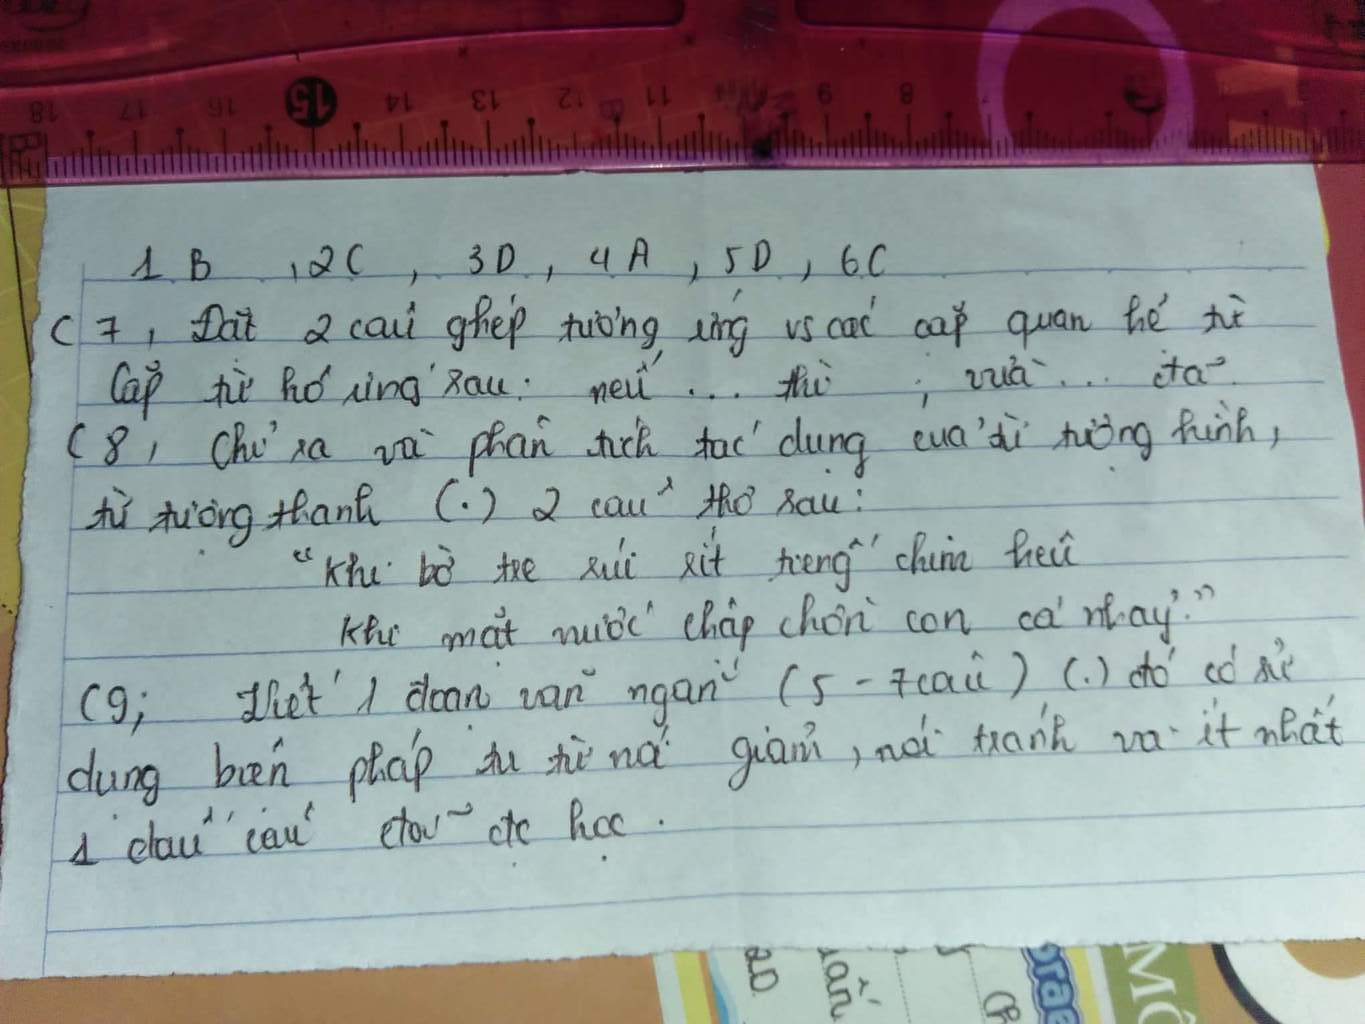 18 17 16 15 14 13 12 11 9 8
1 B , 2C , 3D , 4A , 5D , 6C
C 7 , Đặt 2 câu ghép tương ứng vs các cặp quan hệ từ
Cặp từ hô ứng sau: nếu ... thì ; vừa ... đã
C 8 , Chỉ ra và phân tích tác dụng của từ tượng hình,
từ tượng thanh (.) 2 câu thơ sau:
"Khi bờ tre ríu rít tiếng chim kêu
Khi mặt nước chập chờn con cá nhảy."
C9; Viết 1 đoạn văn ngắn (5 - 7 câu) (.) đó có sử
dụng biện pháp tu từ nói giảm, nói tránh và ít nhất
1 dấu câu đã đc học.
20
MÔ